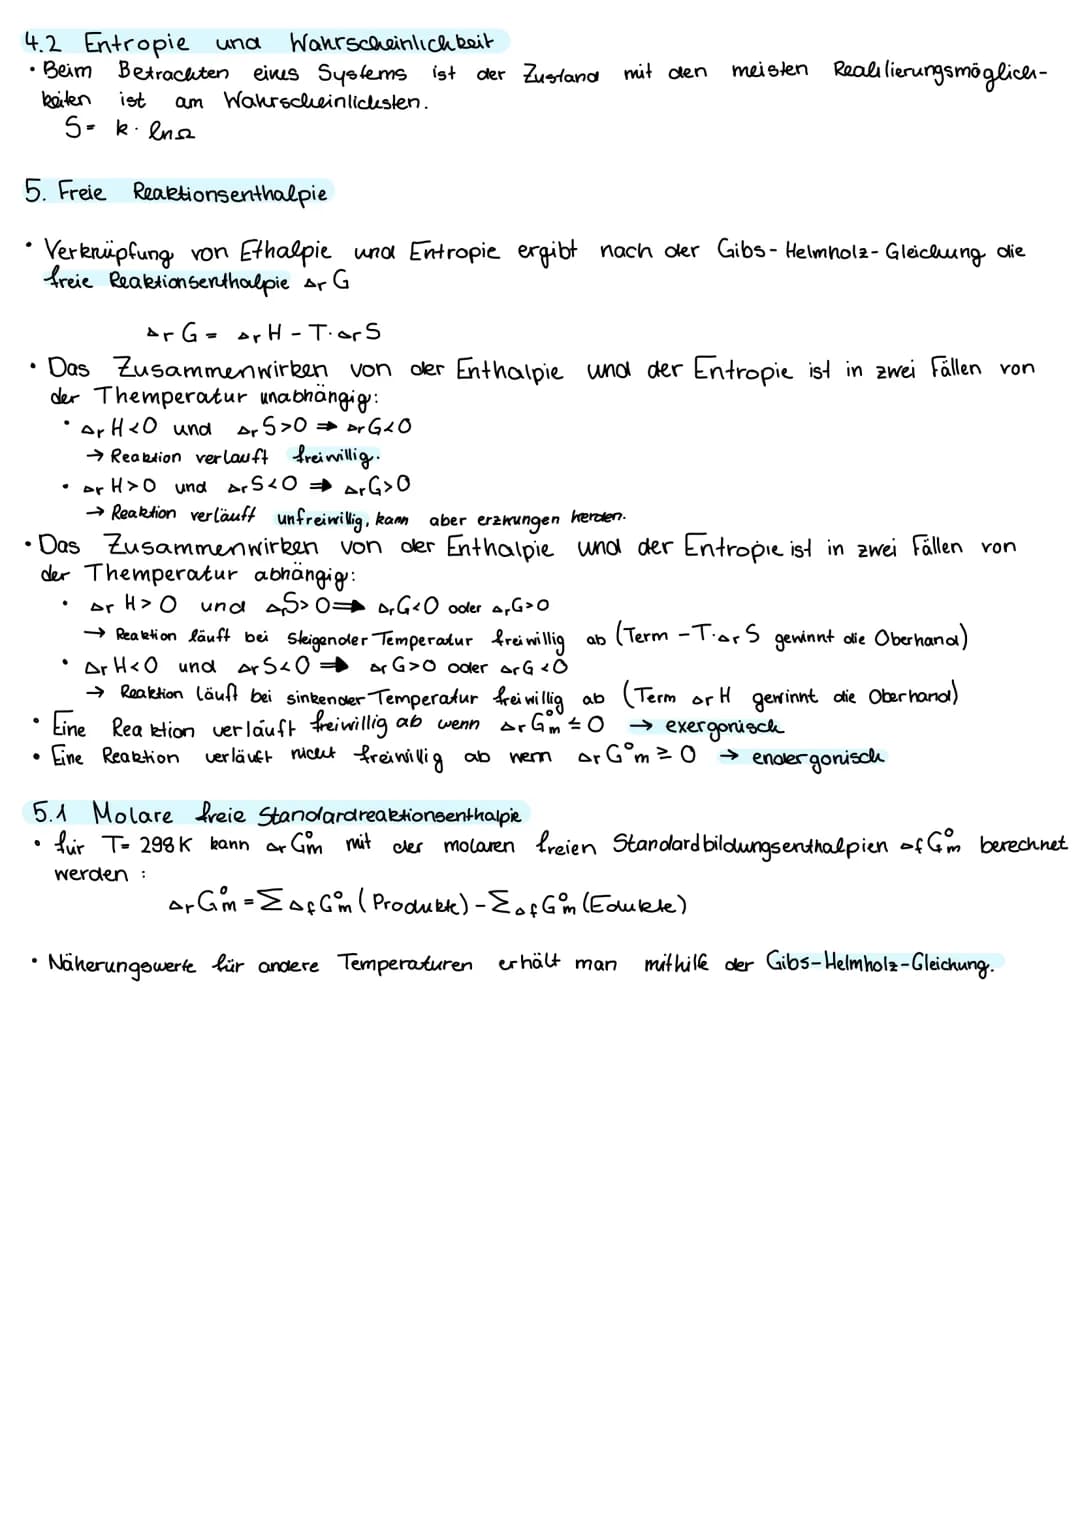 4.2 Entropie und Wahrscheinlichkeit
• Beim Betrachten eines Systems ist der Zustand mit den meisten Realilierungsmöglich-
keiten ist am Wahrscheinlichsten.
S = k · ln Ω
5. Freie Reaktionsenthalpie
• Verknüpfung von Ethalpie und Entropie ergibt nach der Gibs-Helmholz-Gleichung die
freie Reaktionsenthalpie Δr G
Δr G = Δr H - T · Δr S
• Das Zusammenwirken von der Enthalpie und der Entropie ist in zwei Fällen von
der Themperatur unabhängig:
• Δr H < 0 und Δr S > 0 ⇒ Δr G < 0
→ Reaktion verlauft freiwillig.
• Δr H > 0 und Δr S < 0 ⇒ Δr G > 0
→ Reaktion verläuft unfreiwillig, kann aber erzwungen werden.
• Das Zusammenwirken von der Enthalpie und der Entropie ist in zwei Fällen von
der Themperatur abhängig:
• Δr H > 0 und Δr S > 0 ⇒ Δr G < 0 oder Δr G > 0
→ Reaktion läuft bei steigender Temperatur freiwillig ab (Term - T · Δr S gewinnt die Oberhand)
• Δr H < 0 und Δr S < 0 ⇒ Δr G > 0 oder Δr G < 0
→ Reaktion läuft bei sinkender Temperatur freiwillig ab (Term Δr H gewinnt die Oberhand)
• Eine Reaktion verläuft freiwillig ab wenn Δr G°m ≤ 0 → exergonisch
• Eine Reaktion verläuft nicht freiwillig ab wenn Δr G°m ≥ 0 → endergonisch
5.1 Molare freie Standardreaktionsenthalpie
• für T = 298 K kann Δr G°m mit der molaren freien Standardbildungsenthalpien Δf G°m berechnet
werden :
Δr G°m = Σ Δf G°m (Produkte) - Σ Δf G°m (Edukte)
• Näherungswerte für andere Temperaturen erhält man mithilfe der Gibs-Helmholz-Gleichung.